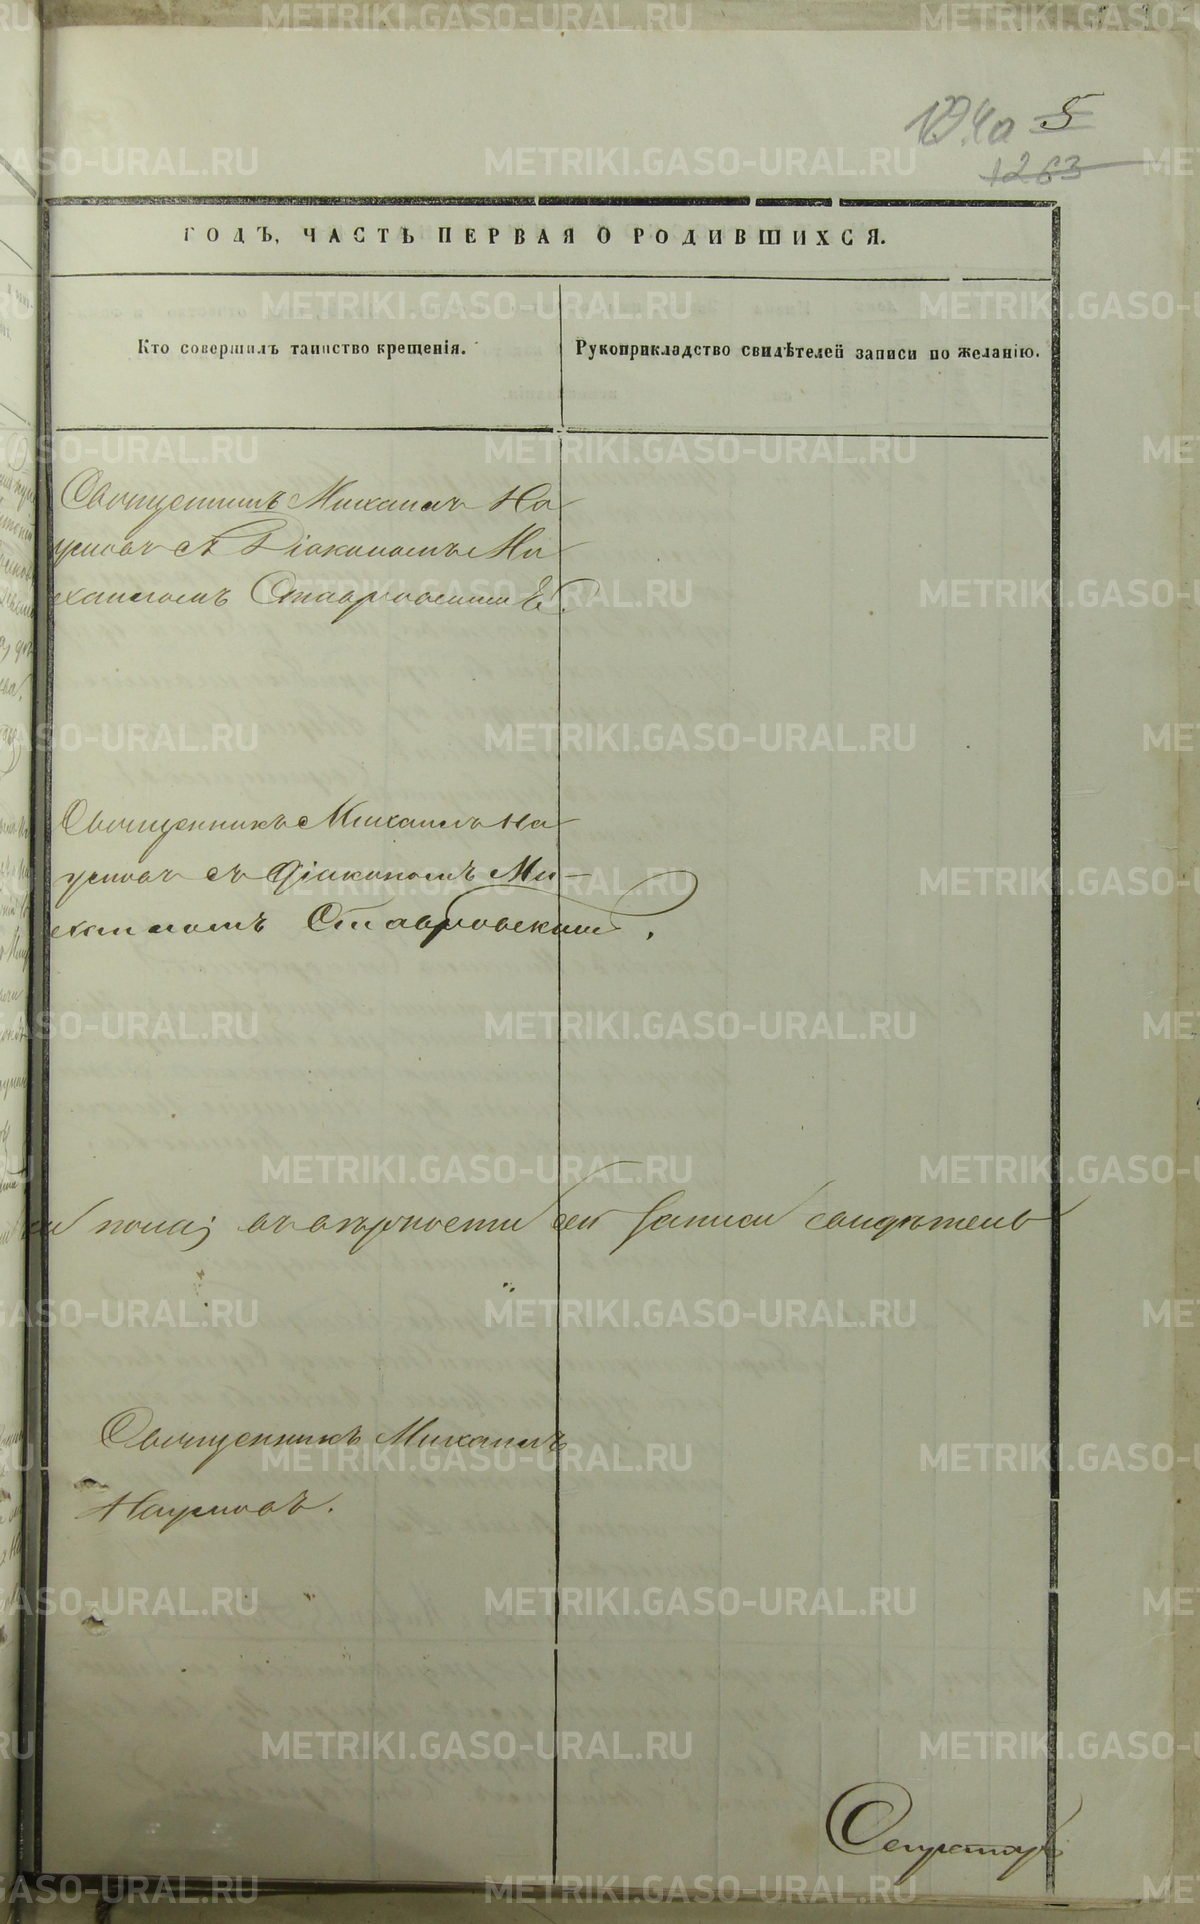 194о 5
1263
ГОДЪ, ЧАСТЬ ПЕРВАЯ О РОДИВШИХСЯ.
Кто совершилъ таинство крещенія.
Рукоприкладство свидѣтелей записи по желанію.
Священникъ Михаилъ На
умовъ съ Діакономъ Ми
хаиломъ Ставровскимъ.
Священникъ Михаилъ На
умовъ съ Діакономъ Ми-
хаиломъ Ставровскимъ.
пола; въ вѣрности сей записи свидѣтель
Священникъ Михаилъ
Наумовъ.
Секретарь
METRIKI.GASO-URAL.RU